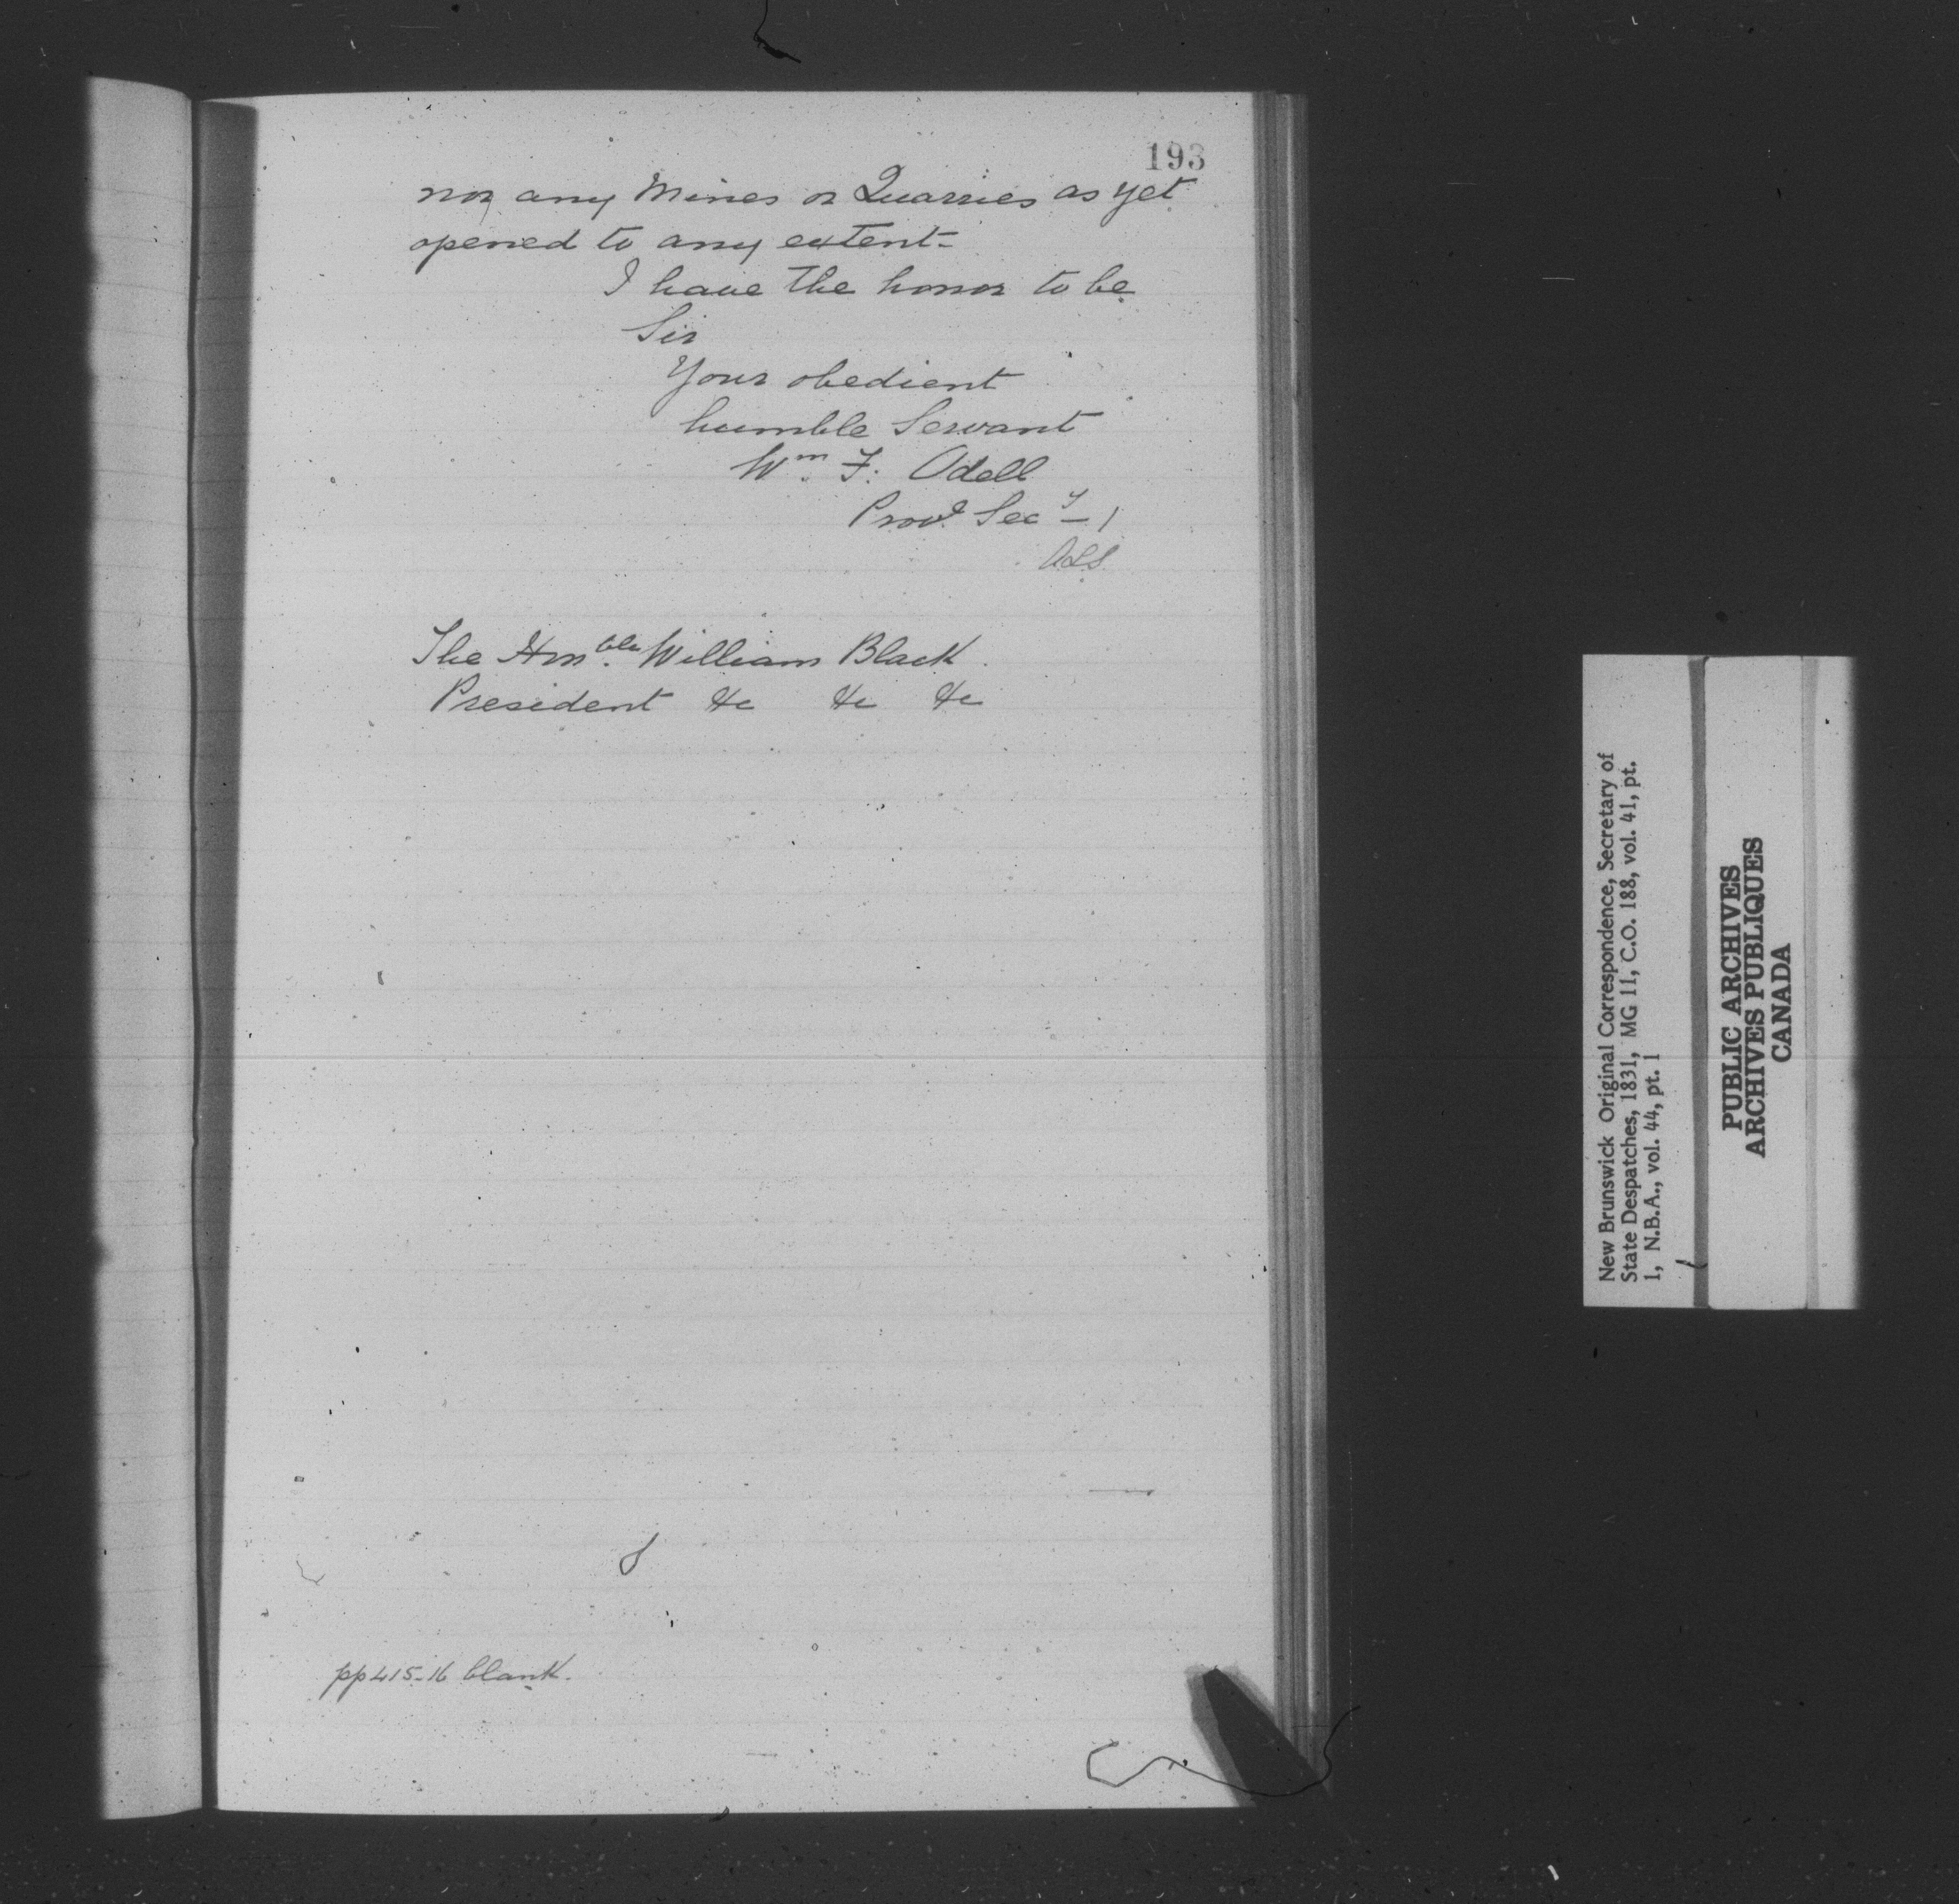 193
nor any Mines or Quarries as yet
opened to any extent-
I have the honor to be
Sir
Your obedient
humble Servant
Wm. F: Odell
Provl. Secy-
ALS.
The Honble. William Black.
President &c &c &c
pp415-16 blank.
New Brunswick Original Correspondence, Secretary of
State Despatches, 1831, MG 11, C.O. 188, vol. 41, pt.
1, N.B.A., vol. 44, pt. 1
PUBLIC ARCHIVES
ARCHIVES PUBLIQUES
CANADA